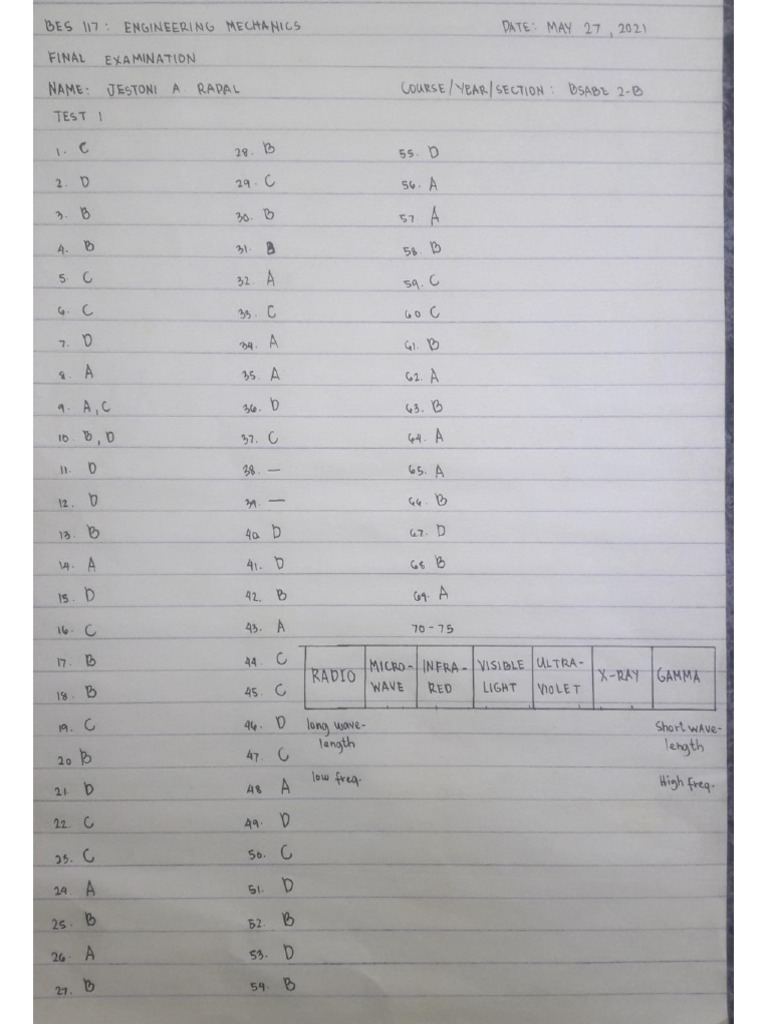 BES 117: ENGINEERING MECHANICS DATE: MAY 27, 2021
FINAL EXAMINATION
NAME: JESTONI A. RAPAL COURSE/YEAR/SECTION: BSABE 2-B
TEST 1
1. C
2. D
3. B
4. B
5. C
6. C
7. D
8. A
9. A, C
10. B, D
11. D
12. D
13. B
14. A
15. D
16. C
17. B
18. B
19. C
20 B
21. D
22. C
23. C
24. A
25. B
26. A
27. B
28. B
29. C
30. B
31. B
32. A
33. C
34. A
35. A
36. D
37. C
38. —
39. —
40 D
41. D
42. B
43. A
44. C
45. C
46. D
47. C
48 A
49. D
50. C
51. D
52. B
53. D
54. B
55. D
56. A
57 A
58. B
59. C
60 C
61. B
62. A
63. B
64. A
65. A
66. B
67. D
68 B
69. A
70-75
RADIO MICRO- INFRA- VISIBLE ULTRA- X-RAY GAMMA
WAVE RED LIGHT VIOLET
long wave- Short wave-
length length
low freq. High freq.